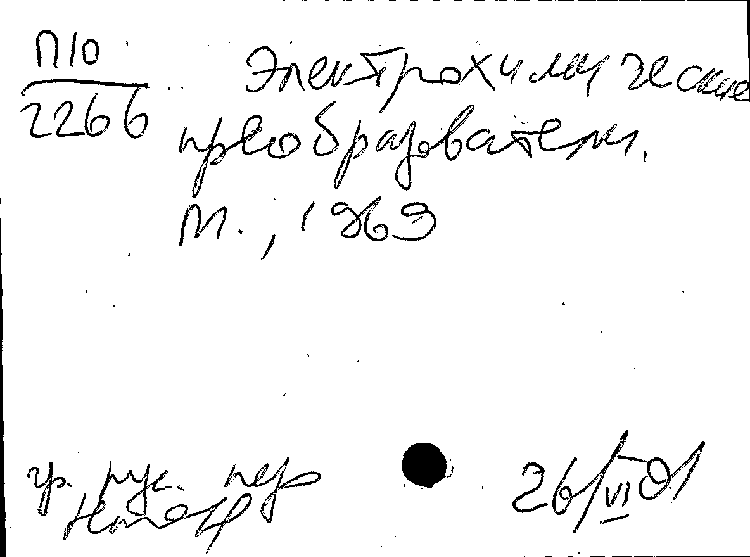 П10
2266
Электрохимические
преобразователи.
М., 1969
гр. рук. пер
26/VI 01